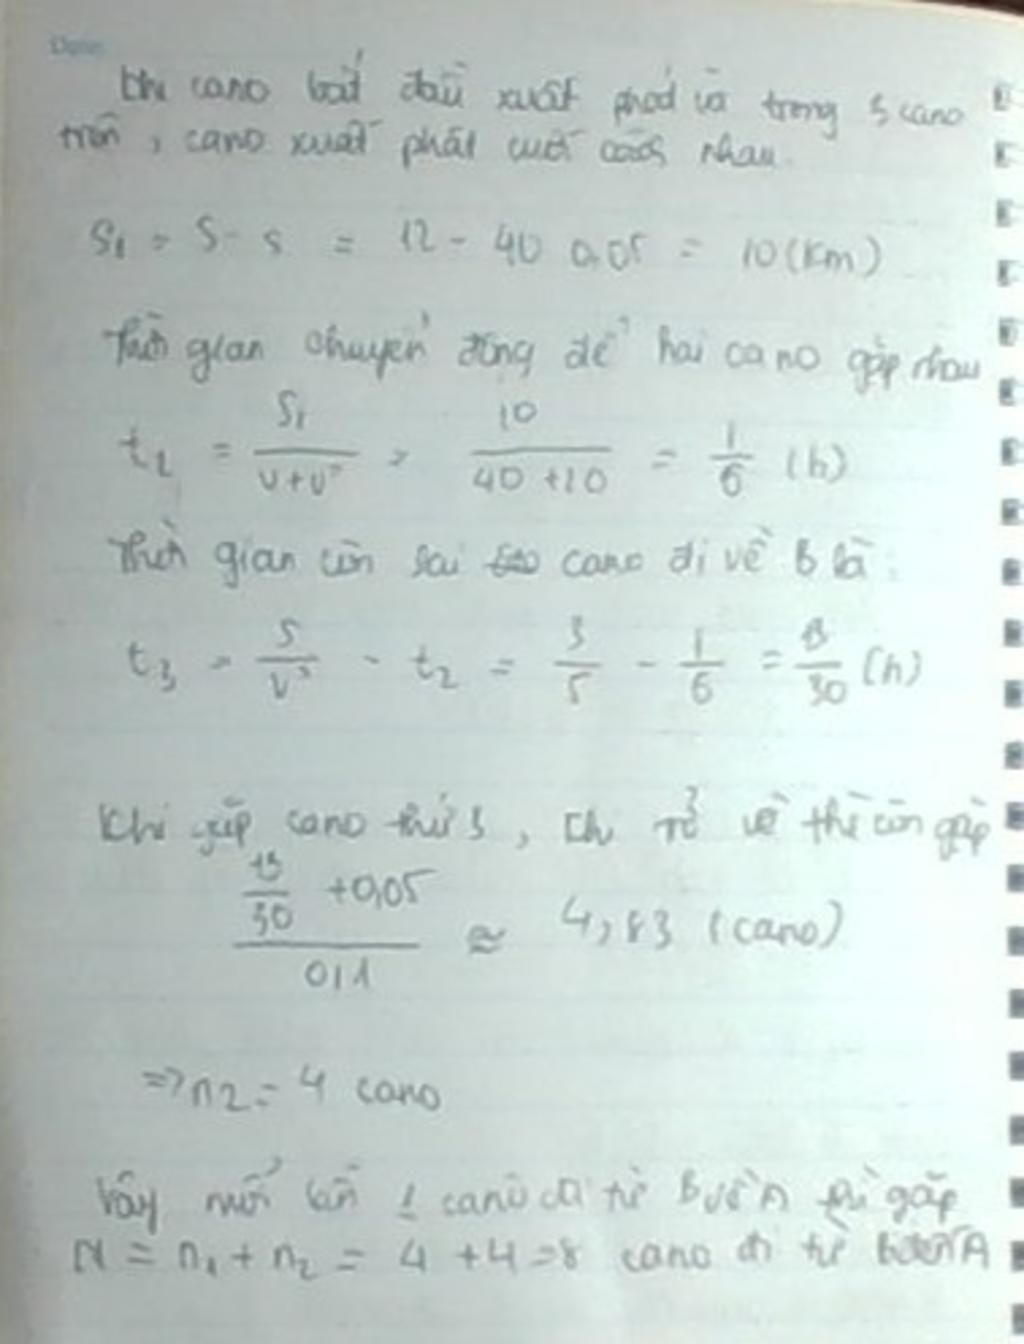 Khi cano bắt đầu xuất phát và trong 5 cano
trên, cano xuất phát cuối cách nhau.
S₁ = S - s = 12 - 40 0,05 = 10 (km)
Thời gian chuyển động để hai cano gặp nhau
t₂ = S₁/(v+v') = 10/(40+20) = 1/6 (h)
Thời gian còn lại cano đi về B là:
t₃ = S/v' - t₂ = 3/5 - 1/6 = 13/30 (h)
Khi gặp cano thứ 5, khi trở về thì còn gặp
(13/30 + 0,05)/0,1 ≈ 4,83 (cano)
=> n2 = 4 cano
Vậy mỗi lần 1 cano đi từ B về A thì gặp
N = n₁ + n₂ = 4 + 4 = 8 cano đi từ A